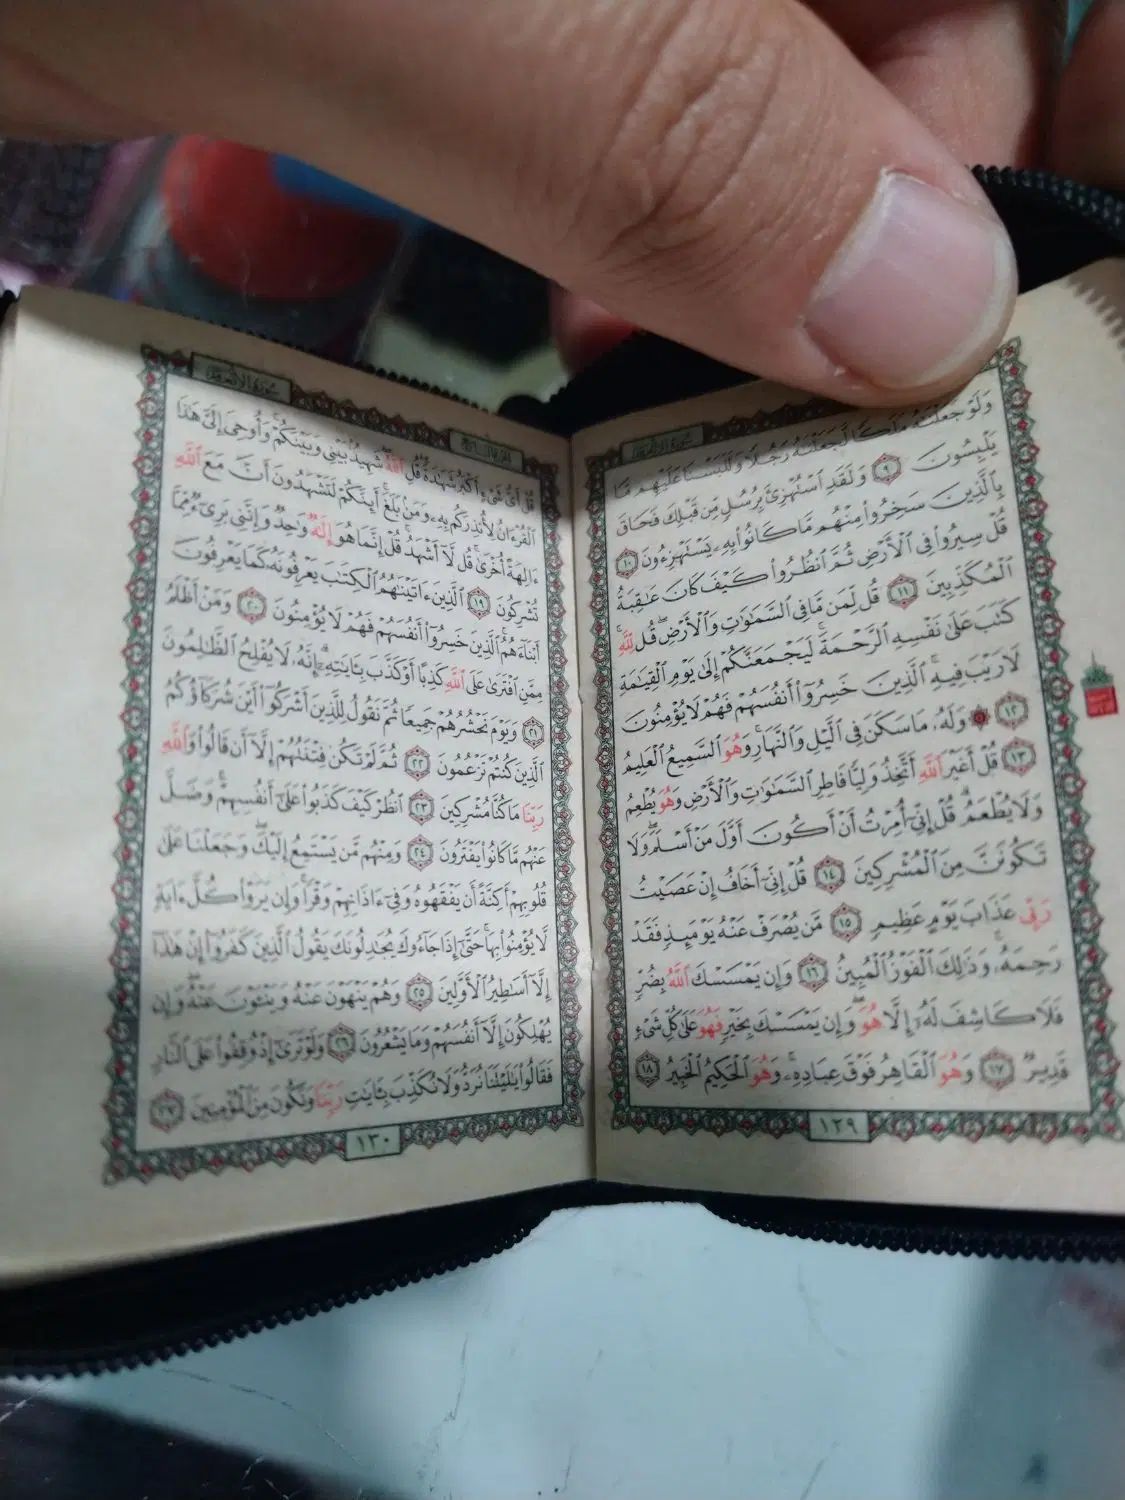 سورة الأنعام
وَلَوْ جَعَلْنَٰهُ مَلَكًا لَّجَعَلْنَٰهُ رَجُلًا وَلَلَبَسْنَا عَلَيْهِم مَّا
يَلْبِسُونَ ٩ وَلَقَدِ ٱسْتُهْزِئَ بِرُسُلٍ مِّن قَبْلِكَ فَحَاقَ
بِٱلَّذِينَ سَخِرُوا۟ مِنْهُم مَّا كَانُوا۟ بِهِۦ يَسْتَهْزِءُونَ ١٠
قُلْ سِيرُوا۟ فِى ٱلْأَرْضِ ثُمَّ ٱنظُرُوا۟ كَيْفَ كَانَ عَٰقِبَةُ
ٱلْمُكَذِّبِينَ ١١ قُل لِّمَن مَّا فِى ٱلسَّمَٰوَٰتِ وَٱلْأَرْضِ ۖ قُل لِّلَّهِ ۚ
كَتَبَ عَلَىٰ نَفْسِهِ ٱلرَّحْمَةَ ۚ لَيَجْمَعَنَّكُمْ إِلَىٰ يَوْمِ ٱلْقِيَٰمَةِ
لَا رَيْبَ فِيهِ ۚ ٱلَّذِينَ خَسِرُوٓا۟ أَنفُسَهُمْ فَهُمْ لَا يُؤْمِنُونَ
١٢ ۞ وَلَهُۥ مَا سَكَنَ فِى ٱلَّيْلِ وَٱلنَّهَارِ ۚ وَهُوَ ٱلسَّمِيعُ ٱلْعَلِيمُ
١٣ قُلْ أَغَيْرَ ٱللَّهِ أَتَّخِذُ وَلِيًّا فَاطِرِ ٱلسَّمَٰوَٰتِ وَٱلْأَرْضِ وَهُوَ يُطْعِمُ
وَلَا يُطْعَمُ ۗ قُلْ إِنِّىٓ أُمِرْتُ أَنْ أَكُونَ أَوَّلَ مَنْ أَسْلَمَ ۖ وَلَا
تَكُونَنَّ مِنَ ٱلْمُشْرِكِينَ ١٤ قُلْ إِنِّىٓ أَخَافُ إِنْ عَصَيْتُ
رَبِّى عَذَابَ يَوْمٍ عَظِيمٍ ١٥ مَّن يُصْرَفْ عَنْهُ يَوْمَئِذٍ فَقَدْ
رَحِمَهُۥ ۚ وَذَٰلِكَ ٱلْفَوْزُ ٱلْمُبِينُ ١٦ وَإِن يَمْسَسْكَ ٱللَّهُ بِضُرٍّ
فَلَا كَاشِفَ لَهُۥٓ إِلَّا هُوَ ۖ وَإِن يَمْسَسْكَ بِخَيْرٍ فَهُوَ عَلَىٰ كُلِّ شَىْءٍ
قَدِيرٌ ١٧ وَهُوَ ٱلْقَاهِرُ فَوْقَ عِبَادِهِۦ ۚ وَهُوَ ٱلْحَكِيمُ ٱلْخَبِيرُ ١٨
١٢٩
الجزء السابع
سورة الأنعام
قُلْ أَىُّ شَىْءٍ أَكْبَرُ شَهَٰدَةً ۖ قُلِ ٱللَّهُ ۖ شَهِيدٌۢ بَيْنِى وَبَيْنَكُمْ ۚ وَأُوحِىَ إِلَىَّ هَٰذَا
ٱلْقُرْءَانُ لِأُنذِرَكُم بِهِۦ وَمَنۢ بَلَغَ ۚ أَئِنَّكُمْ لَتَشْهَدُونَ أَنَّ مَعَ ٱللَّهِ
ءَالِهَةً أُخْرَىٰ ۚ قُل لَّآ أَشْهَدُ ۚ قُلْ إِنَّمَا هُوَ إِلَٰهٌ وَٰحِدٌ وَإِنَّنِى بَرِىٓءٌ مِّمَّا
تُشْرِكُونَ ١٩ ٱلَّذِينَ ءَاتَيْنَٰهُمُ ٱلْكِتَٰبَ يَعْرِفُونَهُۥ كَمَا يَعْرِفُونَ
أَبْنَآءَهُمُ ۘ ٱلَّذِينَ خَسِرُوٓا۟ أَنفُسَهُمْ فَهُمْ لَا يُؤْمِنُونَ ٢٠ وَمَنْ أَظْلَمُ
مِمَّنِ ٱفْتَرَىٰ عَلَى ٱللَّهِ كَذِبًا أَوْ كَذَّبَ بِـَٔايَٰتِهِۦٓ ۗ إِنَّهُۥ لَا يُفْلِحُ ٱلظَّٰلِمُونَ
٢١ وَيَوْمَ نَحْشُرُهُمْ جَمِيعًا ثُمَّ نَقُولُ لِلَّذِينَ أَشْرَكُوٓا۟ أَيْنَ شُرَكَآؤُكُمُ
ٱلَّذِينَ كُنتُمْ تَزْعُمُونَ ٢٢ ثُمَّ لَمْ تَكُن فِتْنَتُهُمْ إِلَّآ أَن قَالُوا۟ وَٱللَّهِ
رَبِّنَا مَا كُنَّا مُشْرِكِينَ ٢٣ ٱنظُرْ كَيْفَ كَذَبُوا۟ عَلَىٰٓ أَنفُسِهِمْ ۚ وَضَلَّ
عَنْهُم مَّا كَانُوا۟ يَفْتَرُونَ ٢٤ وَمِنْهُم مَّن يَسْتَمِعُ إِلَيْكَ ۖ وَجَعَلْنَا عَلَىٰ
قُلُوبِهِمْ أَكِنَّةً أَن يَفْقَهُوهُ وَفِىٓ ءَاذَانِهِمْ وَقْرًا ۚ وَإِن يَرَوْا۟ كُلَّ ءَايَةٍ
لَّا يُؤْمِنُوا۟ بِهَا ۚ حَتَّىٰٓ إِذَا جَآءُوكَ يُجَٰدِلُونَكَ يَقُولُ ٱلَّذِينَ كَفَرُوٓا۟ إِنْ هَٰذَآ
إِلَّآ أَسَٰطِيرُ ٱلْأَوَّلِينَ ٢٥ وَهُمْ يَنْهَوْنَ عَنْهُ وَيَنْـَٔوْنَ عَنْهُ ۖ وَإِن
يُهْلِكُونَ إِلَّآ أَنفُسَهُمْ وَمَا يَشْعُرُونَ ٢٦ وَلَوْ تَرَىٰٓ إِذْ وُقِفُوا۟ عَلَى ٱلنَّارِ
فَقَالُوا۟ يَٰلَيْتَنَا نُرَدُّ وَلَا نُكَذِّبَ بِـَٔايَٰتِ رَبِّنَا وَنَكُونَ مِنَ ٱلْمُؤْمِنِينَ ٢٧
١٣٠